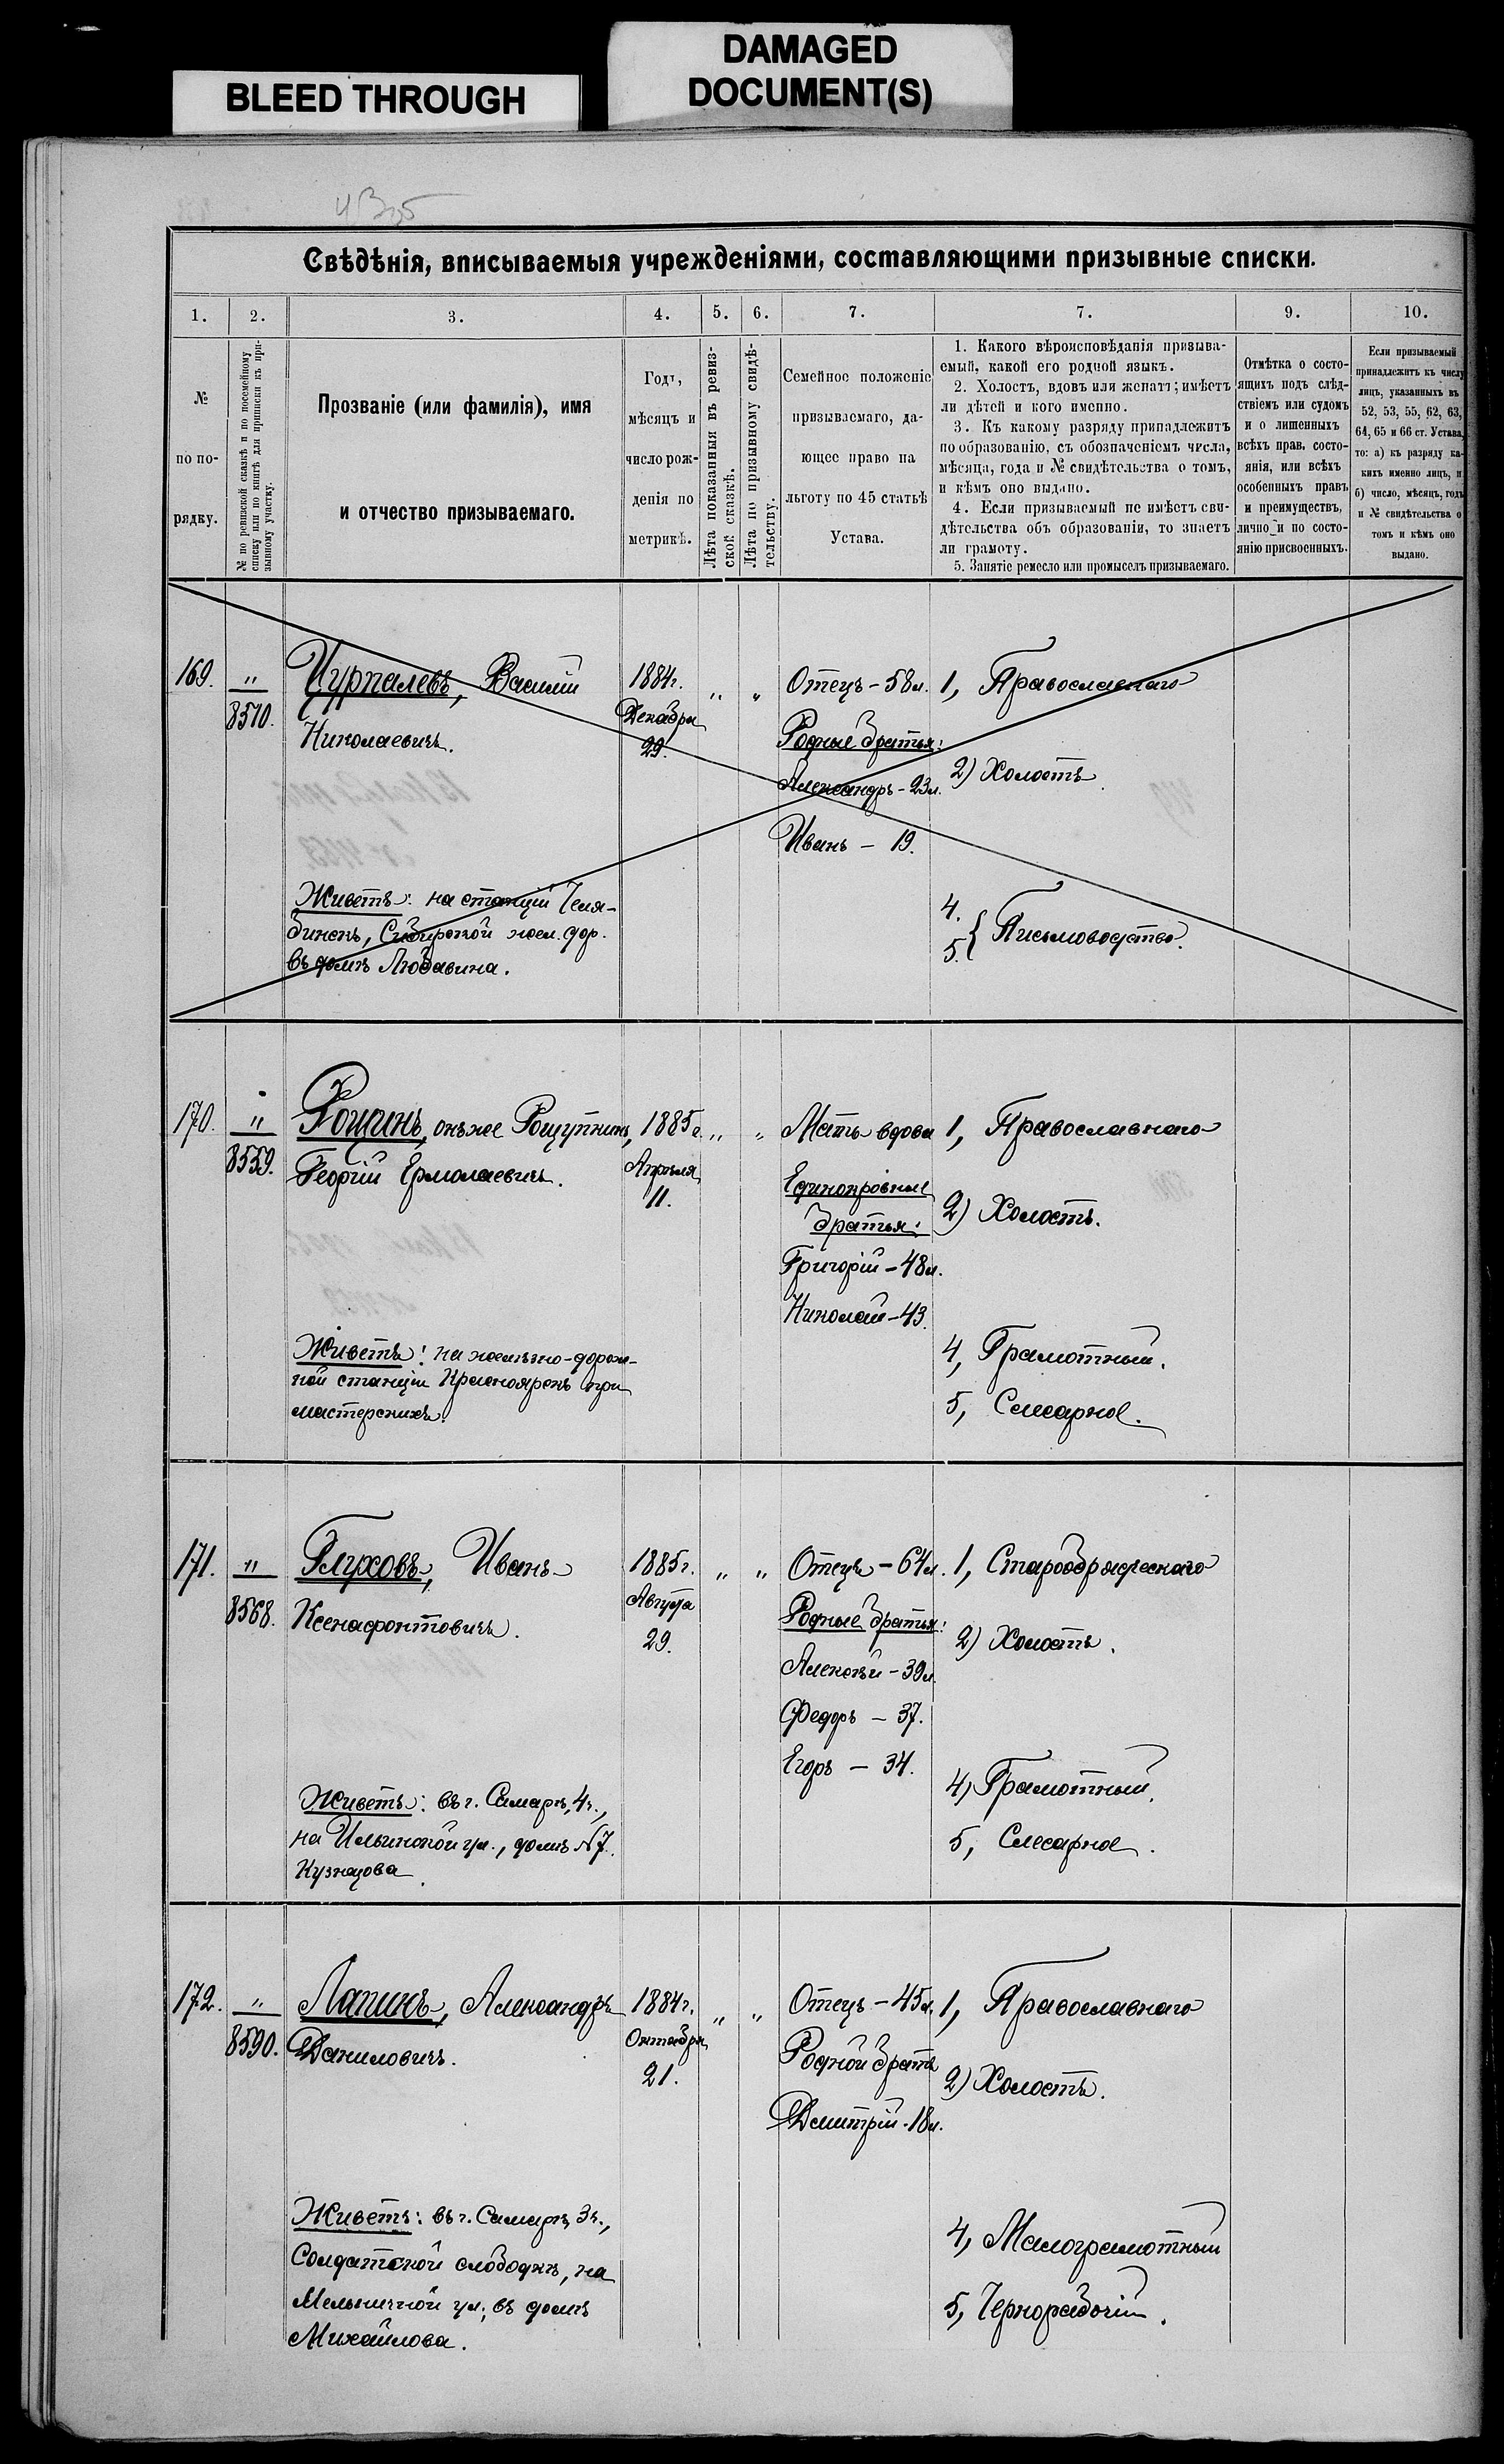 BLEED THROUGH
DAMAGED
DOCUMENT(S)
Свѣдѣнія, вписываемыя учрежденіями, составляющими призывные списки.
1.
2.
3.
4.
5.
6.
7.
7.
9.
10.
№
по по-
рядку.
№ по ревизской сказкѣ и по посемейному
списку или по книгѣ для приписки къ при-
зывному участку.
Прозваніе (или фамилія), имя
и отчество призываемаго.
Годъ,
мѣсяцъ и
число рож-
денія по
метрикѣ.
Лѣта показанныя въ ревиз-
ской сказкѣ.
Лѣта по призывному свидѣ-
тельству.
Семейное положеніе
призываемаго, да-
ющее право на
льготу по 45 статьѣ
Устава.
1. Какого вѣроисповѣданія призыва-
емый, какой его родной языкъ.
2. Холостъ, вдовъ или женатъ; имѣетъ
ли дѣтей и кого именно.
3. Къ какому разряду принадлежитъ
по образованію, съ обозначеніемъ числа,
мѣсяца, года и № свидѣтельства о томъ,
и кѣмъ оно выдано.
4. Если призываемый не имѣетъ сви-
дѣтельства объ образованіи, то знаетъ
ли грамоту.
5. Занятіе ремесло или промыселъ призываемаго.
Отмѣтка о состо-
ящихъ подъ слѣд-
ствіемъ или судомъ
и о лишенныхъ
всѣхъ прав, состо-
янія, или всѣхъ
особенныхъ правъ
и преимуществъ,
лично и по состо-
янію присвоенныхъ.
Если призываемый
принадлежитъ къ числу
лицъ, указанныхъ въ
52, 53, 55, 62, 63,
64, 65 и 66 ст. Устава,
то: а) къ разряду ка-
кихъ именно лицъ, и
б) число, мѣсяцъ, годъ
и № свидѣтельства о
томъ и кѣмъ оно
выдано.
169. " Цурпалевъ, Василій 1884г. " " Отецъ - 58л. 1, Православнаго
8510. Николаевичъ. Декабря 29. Родные братья:
Александръ - 23л. 2) Холостъ
Иванъ - 19.
Живетъ: на станціи Челя-
бинскъ, Сибирской жел. дор.
въ домѣ Любавина.
4.
5. } Письмоводство.
170. " Рощинъ, онъ же Рощупкинъ, 1885г. " " Мать вдова 1, Православнаго
8559. Георгій Ермолаевичъ. Апрѣля 11. Единокровные
братья: 2) Холостъ.
Григорій - 48л.
Николай - 43.
Живетъ: на желѣзно-дорож-
ной станціи Красноярскъ при
мастерскихъ.
4, Грамотный.
5, Слесарное.
171. " Глуховъ, Иванъ 1885г. " " Отецъ - 64л. 1, Старообрядческаго
8568. Ксенафонтовичъ. Августа 29. Родные братья:
2) Холостъ.
Алексѣй - 39л.
Федоръ - 37.
Егоръ - 34.
Живетъ: въ г. Самарѣ, 4ч.,
на Ильинской ул., домъ №7.
Кузнецова.
4) Грамотный.
5, Слесарное.
172. " Лапинъ, Александръ 1884г. " " Отецъ - 45л. 1, Православнаго
8590. Даниловичъ. Октября 21. Родной братъ
2) Холостъ.
Дмитрій - 18л.
Живетъ: въ г. Самарѣ, 3ч.,
Солдатской слободкѣ, на
Мельничной ул., въ домѣ
Михайлова.
4, Малограмотный
5, Чернорабочій.